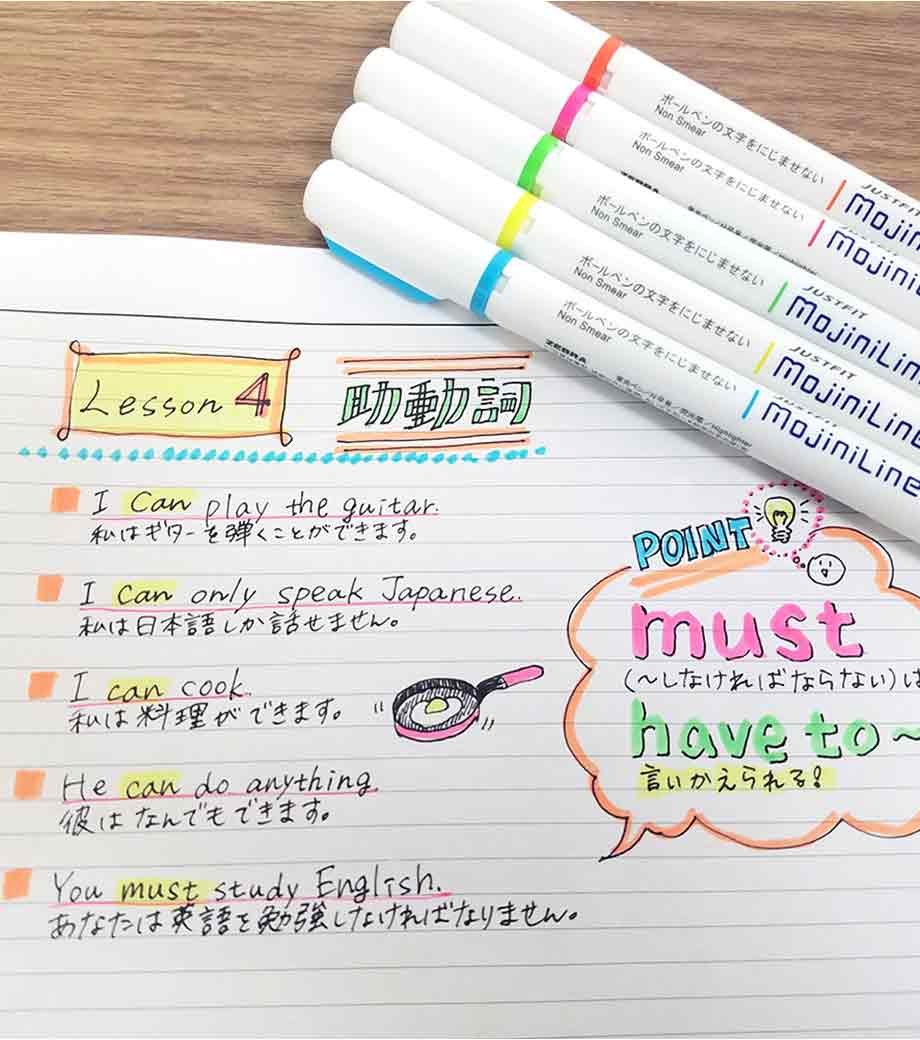 ボールペンの文字をにじませない
Non Smear
JUSTFIT
ボールペンの文字をにじませない
Non Smear
JUSTFIT
ZEBRA
ボールペンの文字をにじませない
Non Smear
JUSTFIT
MojiniLine
ボールペンの文字をにじませない
Non Smear
JUSTFIT
MojiniLine
ボールペンの文字をにじませない
Non Smear
ZEBRA
MojiniLine
Lesson 4 助動詞
I can play the guitar.
私はギターを弾くことができます。
I can only speak Japanese.
私は日本語しか話せません。
I can cook.
私は料理ができます。
He can do anything.
彼はなんでもできます。
You must study English.
あなたは英語を勉強しなければなりません。
POINT
must
(〜しなければならない)は
have to〜
言いかえられる!